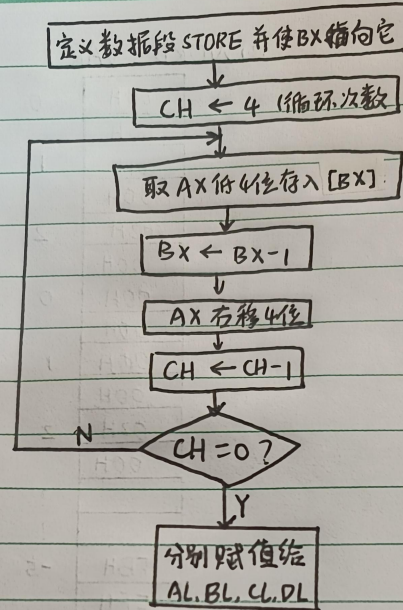 定义数据段 STORE 并使BX指向它
CH ← 4 (循环次数
取 AX 低4位存入 [BX]
BX ← BX-1
AX 右移4位
CH ← CH-1
CH = 0 ?
N
Y
分别赋值给
AL. BL. CL. DL